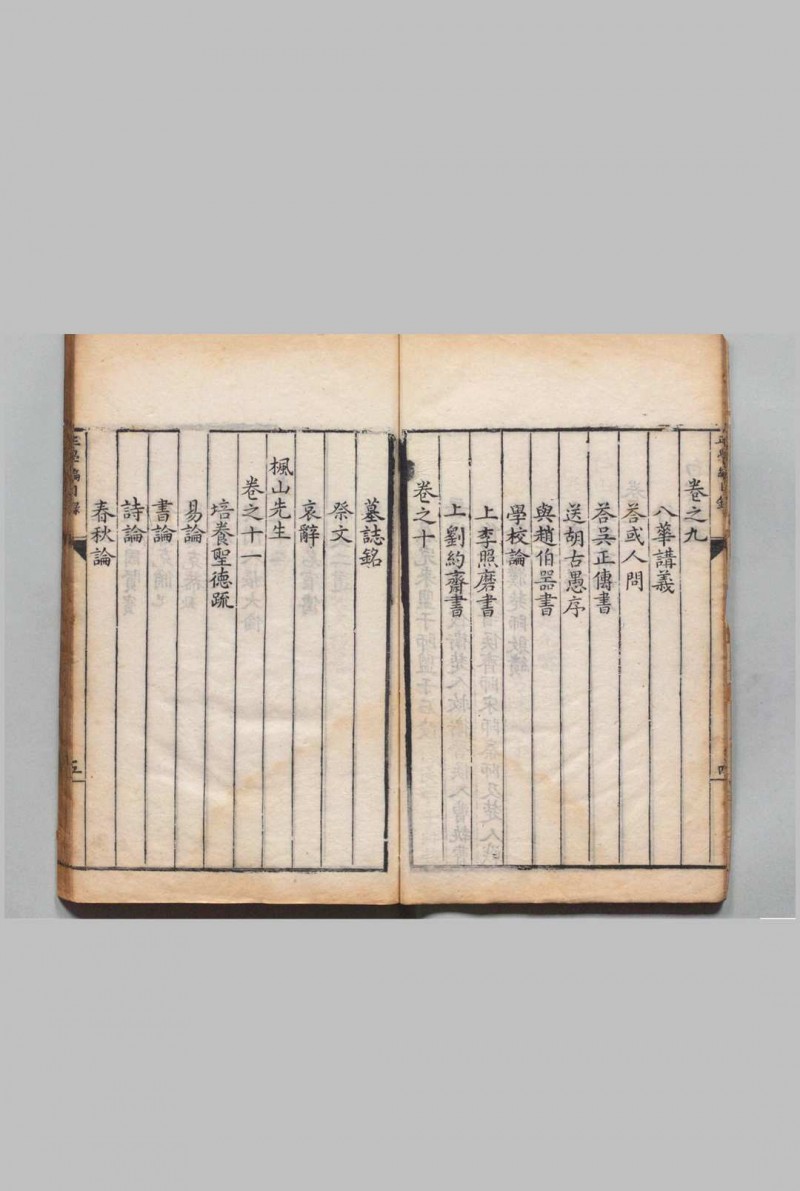 卷之九
八華講義
荅或人問
荅吳正傳書
送胡古愚序
與趙伯器書
學校論
上李照磨書
上劉約齋書
卷之十
墓誌銘
祭文
哀辭
楓山先生
卷之十一
培養聖德疏
易論
書論
詩論
春秋論
五